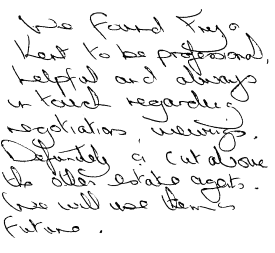 We found Fry &
Kent to be professional,
helpful and always
in touch regarding
negotiations, viewings.
Definitely a cut above
the other estate agents.
We will use them in
future.